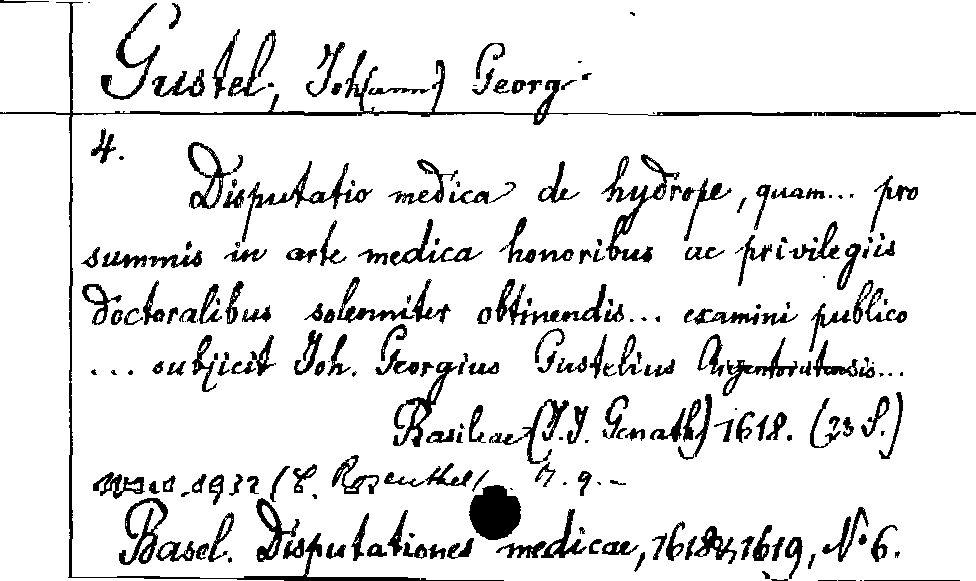 Gustel, Joh(ann) Georg
4.
Disputatio medica de hydrope, quam... pro
summis in arte medica honoribus ac privilegiis
doctoralibus solenniter obtinendis... examini publico
... subjicit Joh. Georgius Gustelius Argentoratensis...
Basileae (J.J. Genath) 1618. (23 S.)
1932 ( Rosenthal)
Basel. Disputationes medicae, 1618 & 1619, No 6.